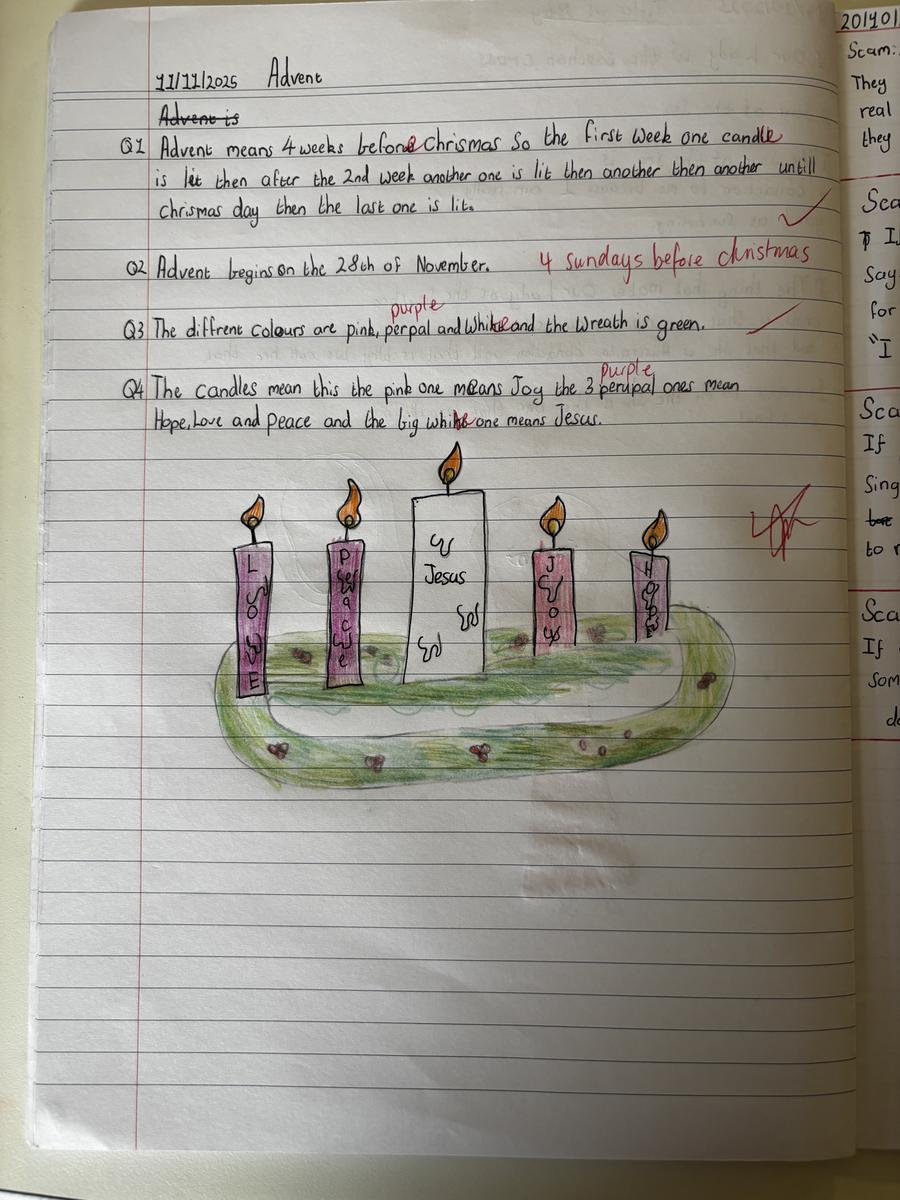 11/11/2025 Advent
Advent is
Q1 Advent means 4 weeks before Chrismas So the first week one candle
is lit then after the 2nd week another one is lit then another then another untill
chrismas day then the last one is lit.
Q2 Advent begins on the 28th of November. 4 sundays before christmas
purple
Q3 The diffrent colours are pink, perpal and White and the wreath is green.
purple
Q4 The candles mean this the pink one means Joy the 3 perupal ones mean
Hope, Love and peace and the big white one means Jesus.
LOVE
Peace
Jesus
Joy
HOPE
201101
Scam:
They
real
they
Sca
I
Say
for
"I
Sca
If
Sing
to
Sca
If
Som